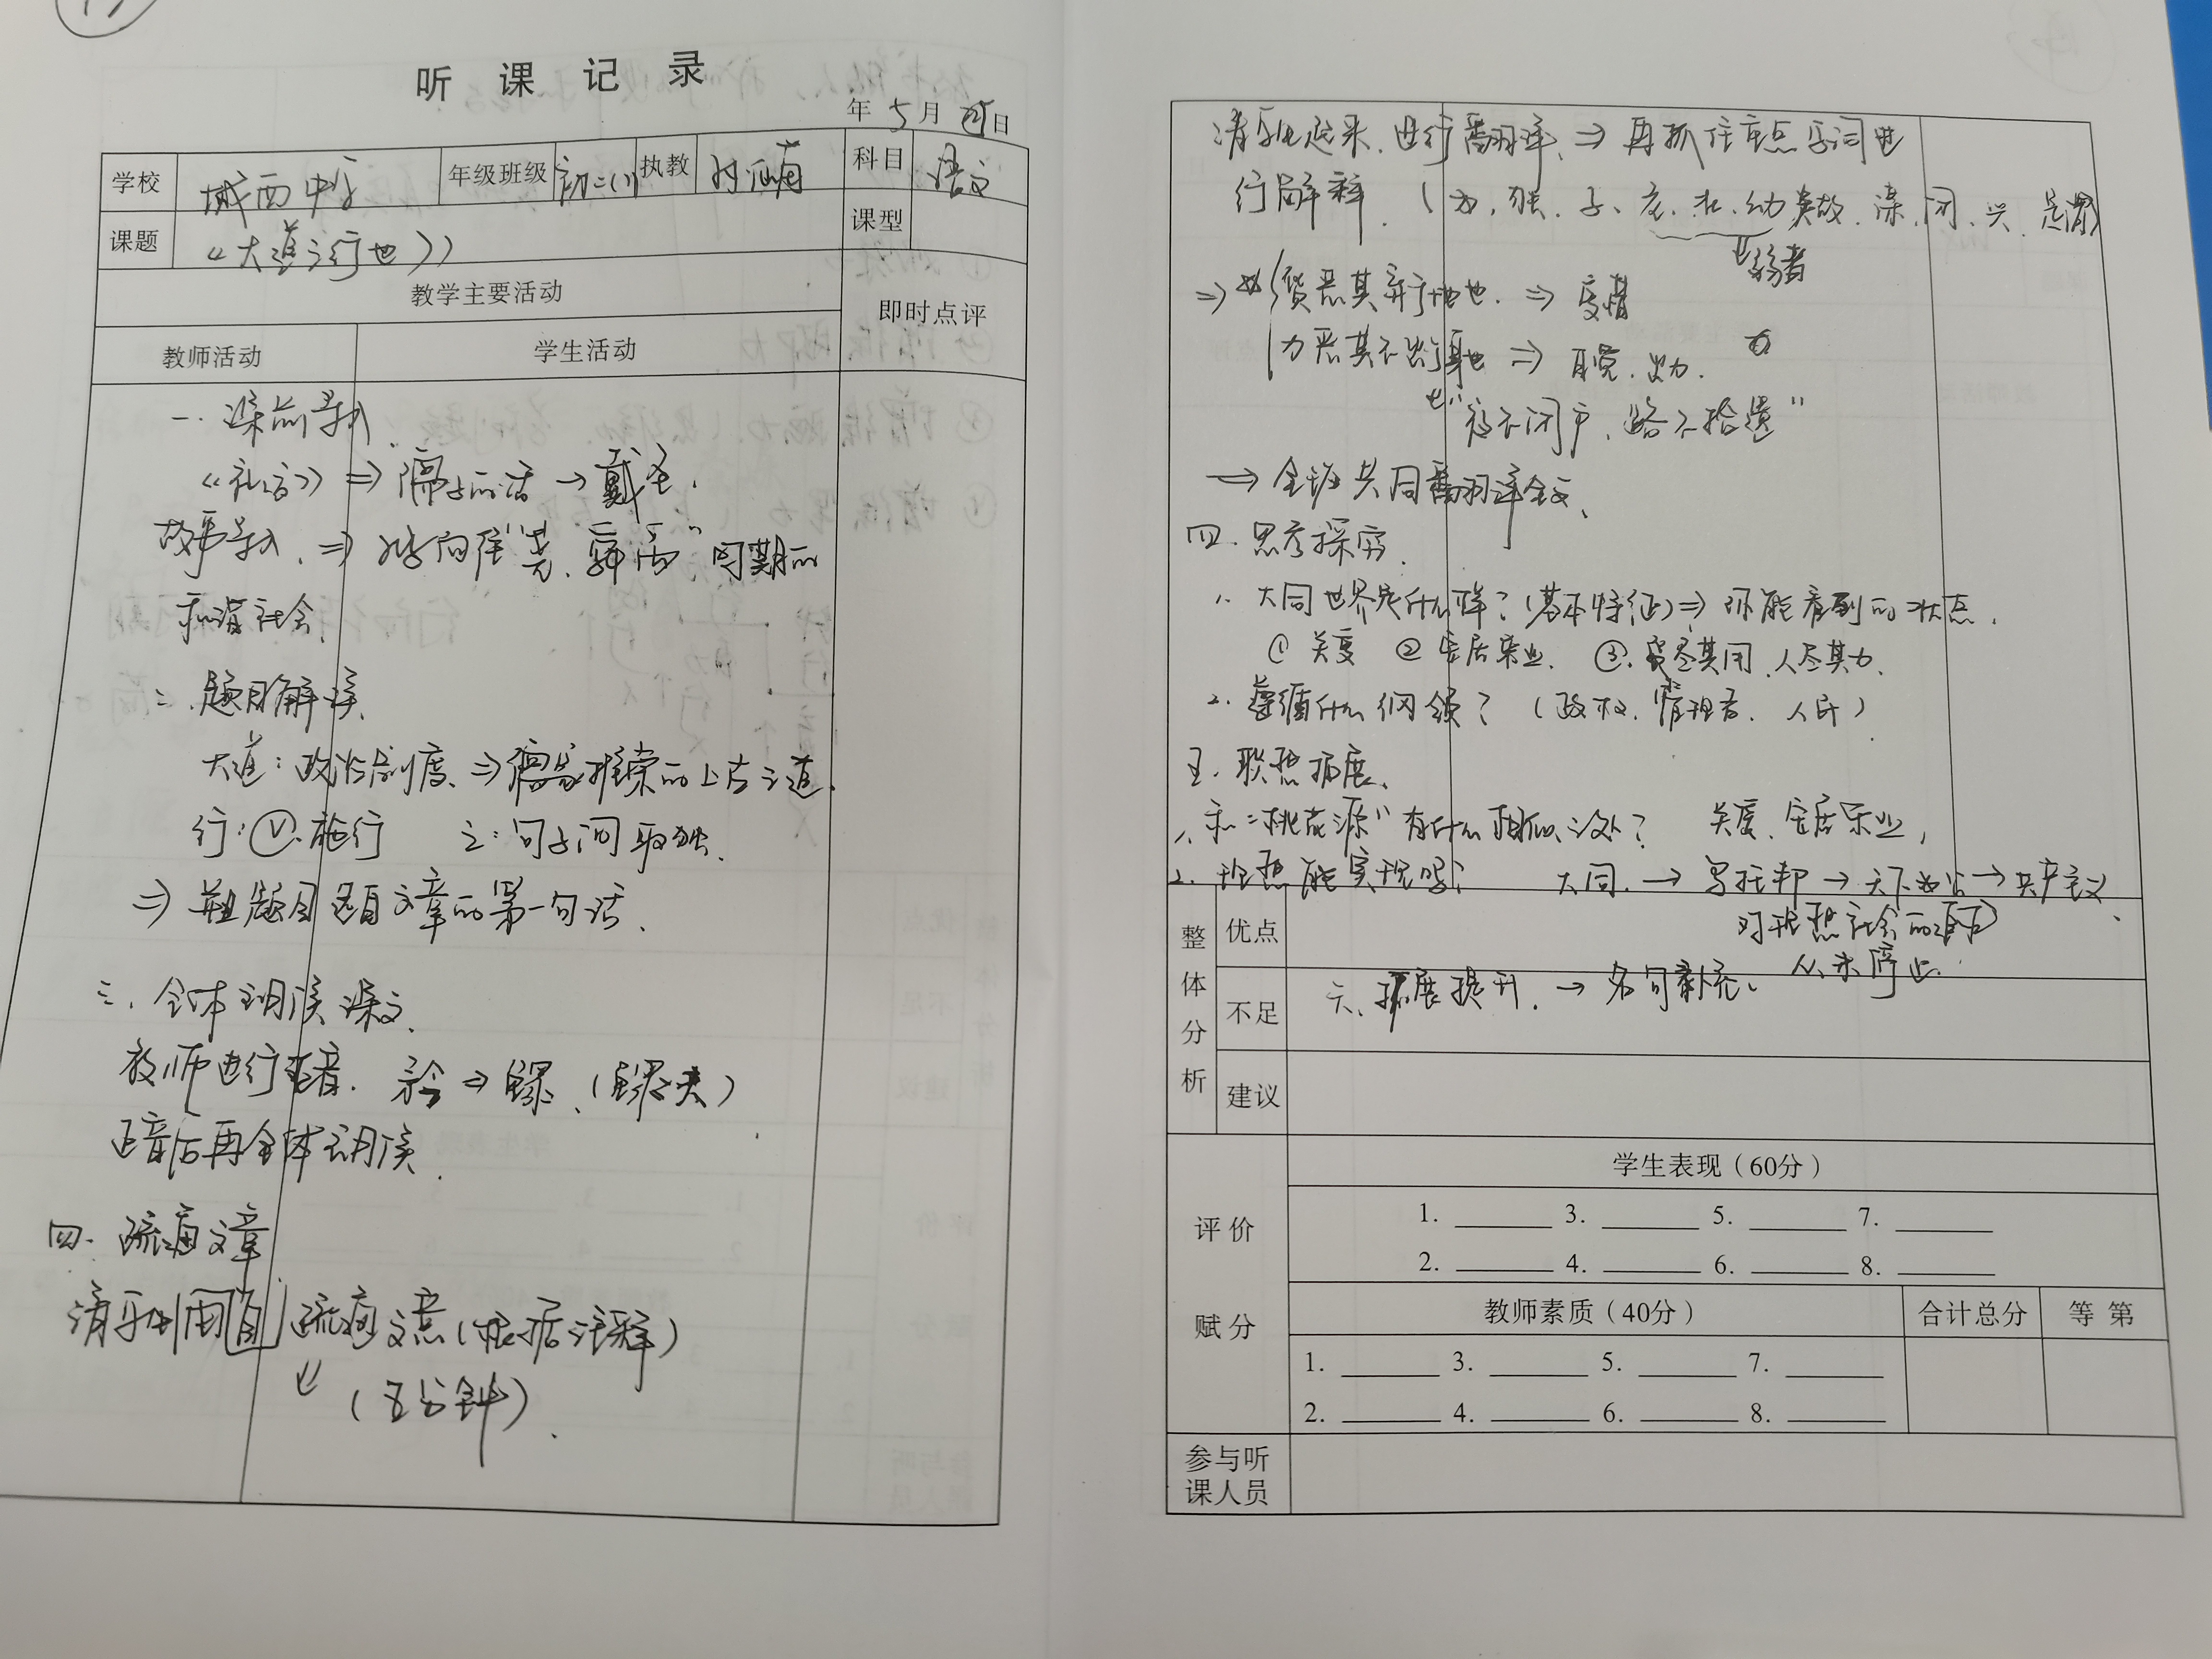 听课记录
年 5 月 日
学校 城西中学 年级班级 初二(1) 执教 科目 语文
课题 《大道之行也》 课型
教学主要活动 即时点评
教师活动 学生活动
一、课前导入
《礼记》⇒ 儒子的话 → 戴圣.
故事导入. ⇒ 向往"尧、舜、禹"同期的
和谐社会.
二、题目解读.
大道: 政治制度. ⇒ 儒家推崇的上古之道.
行: Ⓥ. 施行 之: 句子间取独.
⇒ 题目是文章的第一句话.
三、全体朗读课文.
教师进行正音. 矜 ⇒ 鳏、(鳏夫)
正音后再全体朗读.
四. 疏通文章
请同桌疏通文意(根据注释)
(五分钟).
请学生起来. 进行翻译. ⇒ 再抓住重点字词进
行解释. (为. 独. 子、 幼 归
弱者
⇒ 货恶其弃于地也. ⇒ 爱惜
力恶其不出于身也 ⇒ 自觉. 出力.
"夜不闭户、路不拾遗"
→ 全班共同翻译全文.
四. 思考探究.
1. 大同世界是什么样? (基本特征) ⇒ 你能看到的状态.
① 关爱 ② 安居乐业. ③. 货尽其用. 人尽其力.
2. 遵循什么纲领? (政权、管理者. 人民)
五. 联想拓展.
1. 和"桃花源"有什么相似之处? 关爱、安居乐业,
2. 理想能实现吗? 大同. → 乌托邦 → 天下为公 → 共产主义.
对理想社会的追求
从未停止.
六、拓展提升. → 名句补充.
整体分析
优点
不足
建议
评价赋分
学生表现（60分）
1. 3. 5. 7.
2. 4. 6. 8.
教师素质（40分） 合计总分 等第
1. 3. 5. 7.
2. 4. 6. 8.
参与听课人员